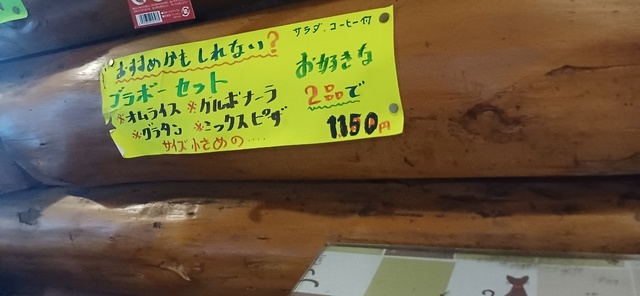 おすすめかもしれない?
サラダ、コーヒー付
ブラボーセット
お好きな
※オムライス ※カルボナーラ
2品で
※グラタン ※ミックスピザ
1150円
サイズ小さめの....